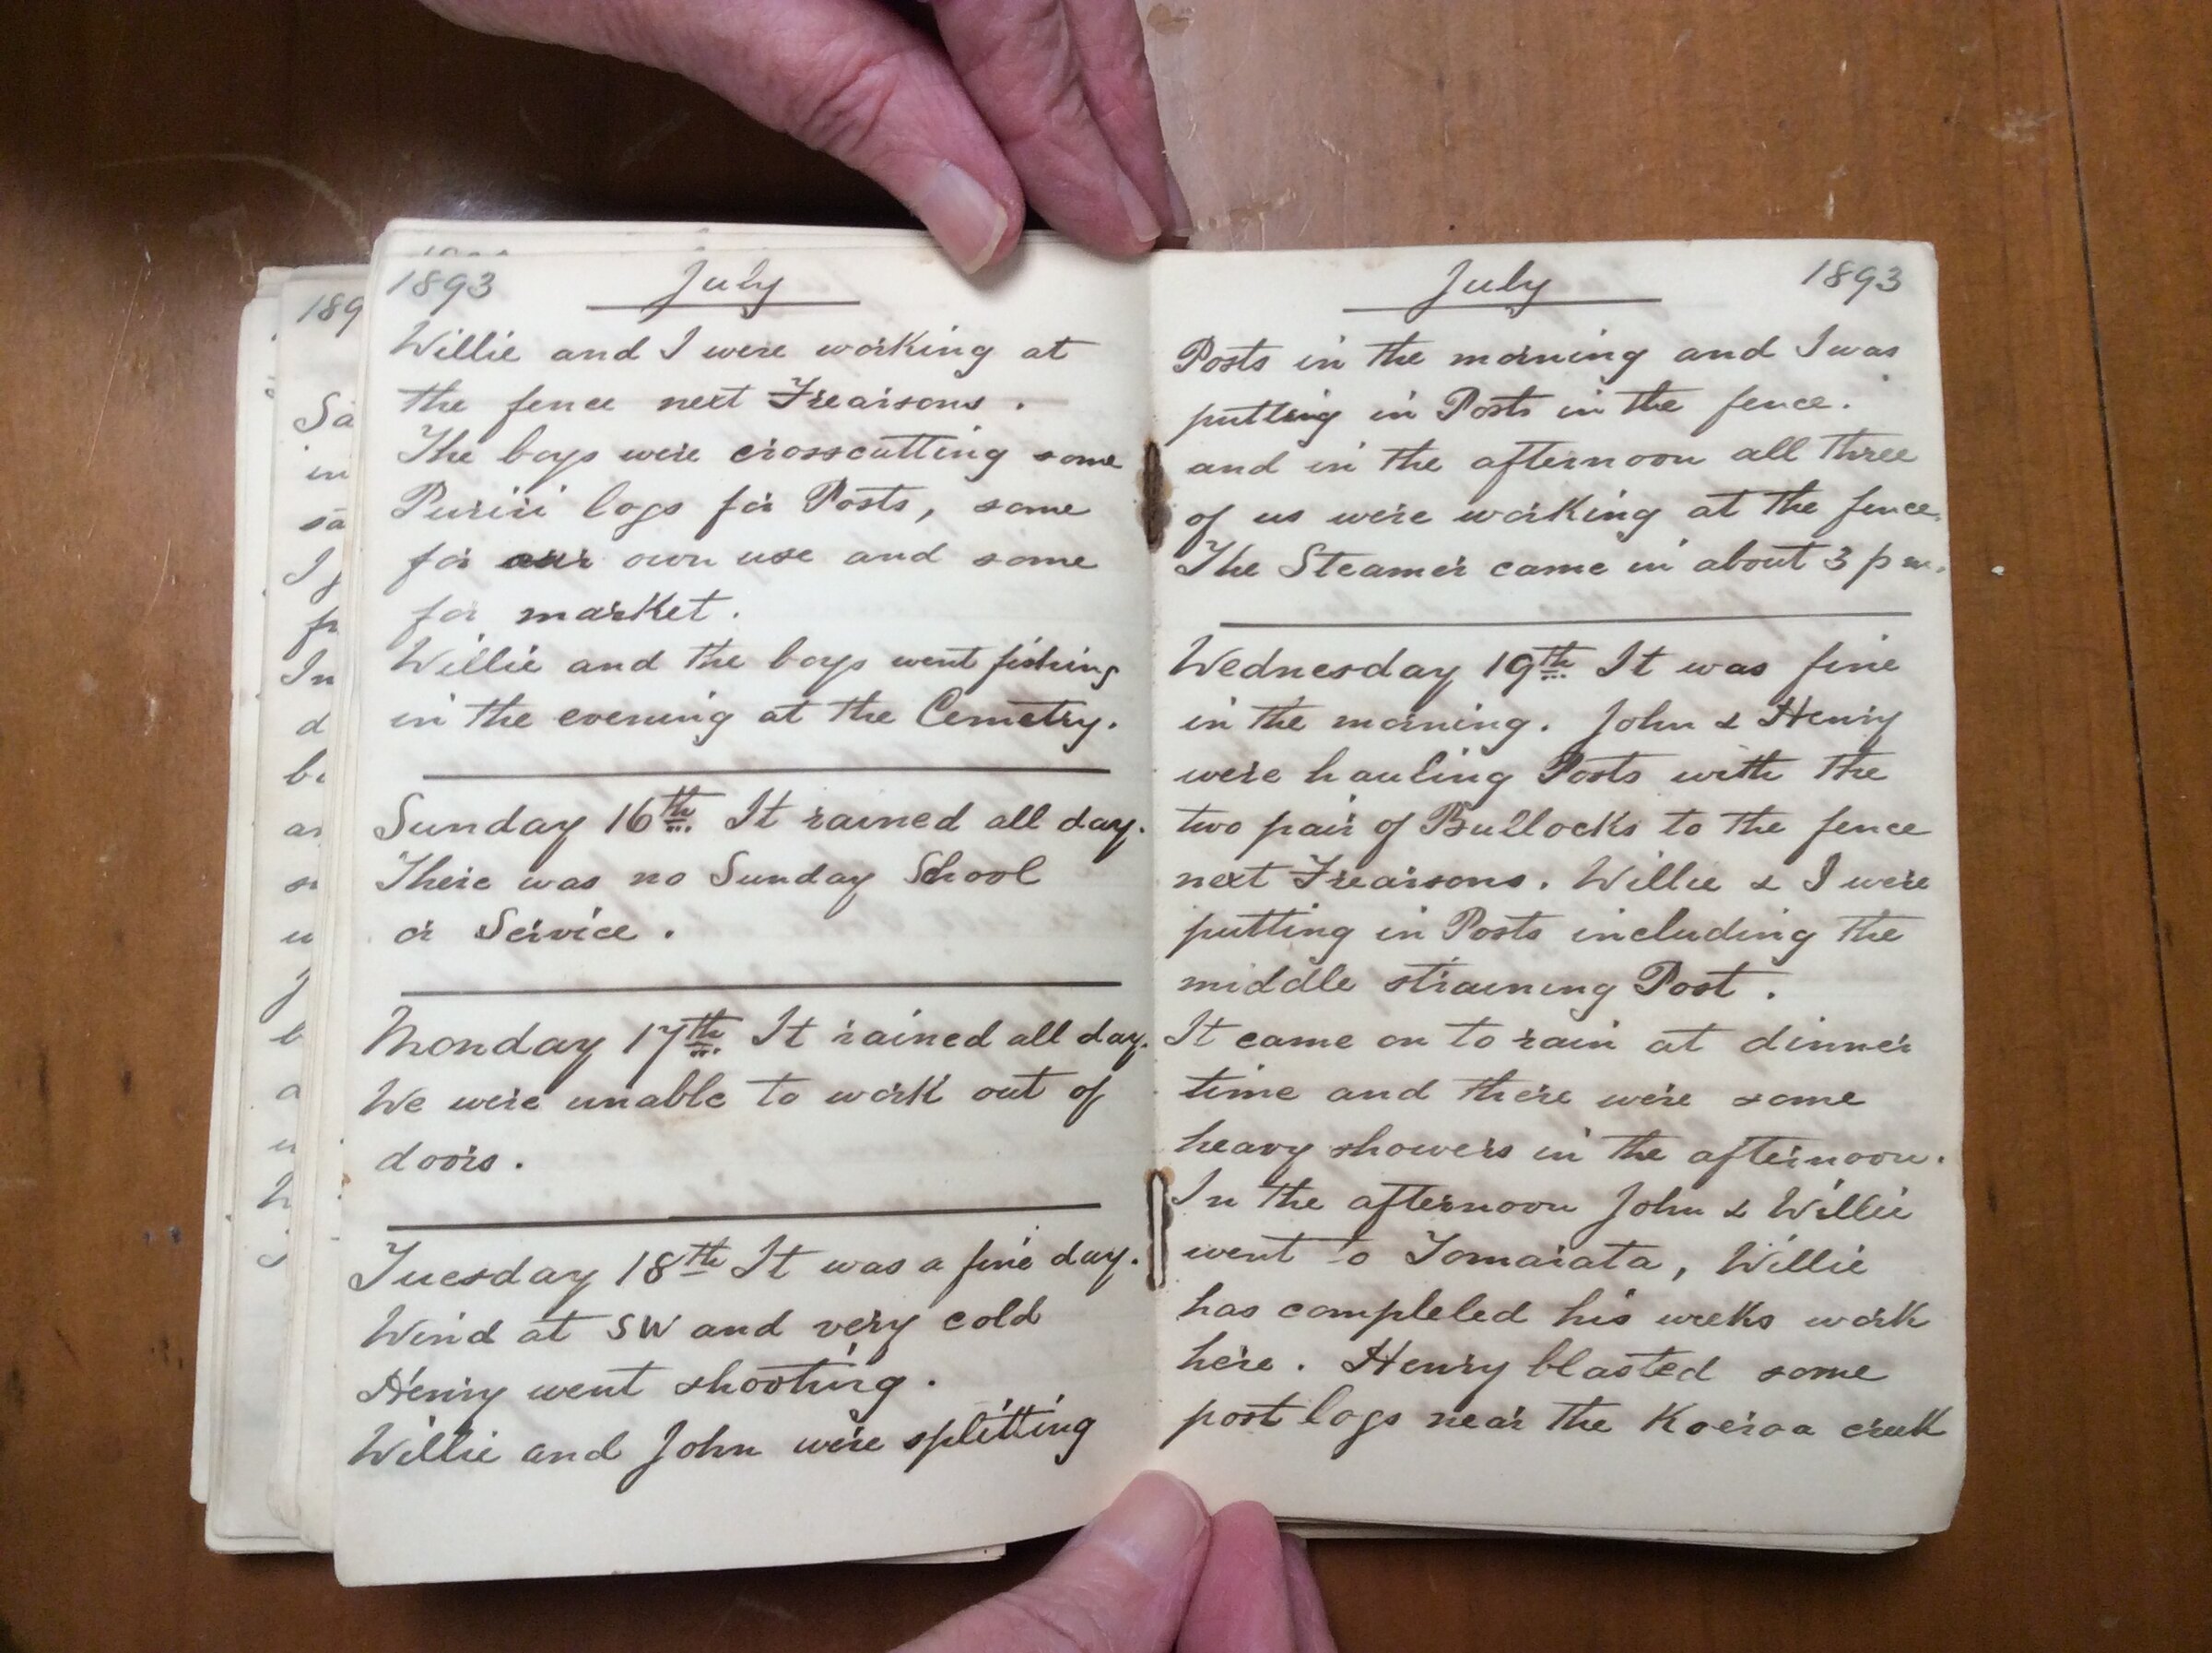 1893 July
Willie and I were working at
the fence next Frearsons.
The boys were crosscutting some
Puriri logs for Posts, some
for our own use and some
for market.
Willie and the boys went fishing
in the evening at the Cemetry.
Sunday 16th It rained all day.
There was no Sunday School
or Service.
Monday 17th It rained all day.
We were unable to work out of
doors.
Tuesday 18th It was a fine day.
Wind at SW and very cold
Henry went shooting.
Willie and John were splitting
July 1893
Posts in the morning and I was
putting in Posts in the fence.
and in the afternoon all three
of us were working at the fence.
The Steamer came in about 3 pm.
Wednesday 19th It was fine
in the morning. John & Henry
were hauling Posts with the
two pair of Bullocks to the fence
next Frearsons. Willie & I were
putting in Posts including the
middle straining Post.
It came on to rain at dinner
time and there were some
heavy showers in the afternoon.
In the afternoon John & Willie
went to Tomarata, Willie
has completed his weeks work
here. Henry blasted some
post logs near the Koeroa creek
189
Sa
in
sa
I
fr
In
d
be
as
b
a